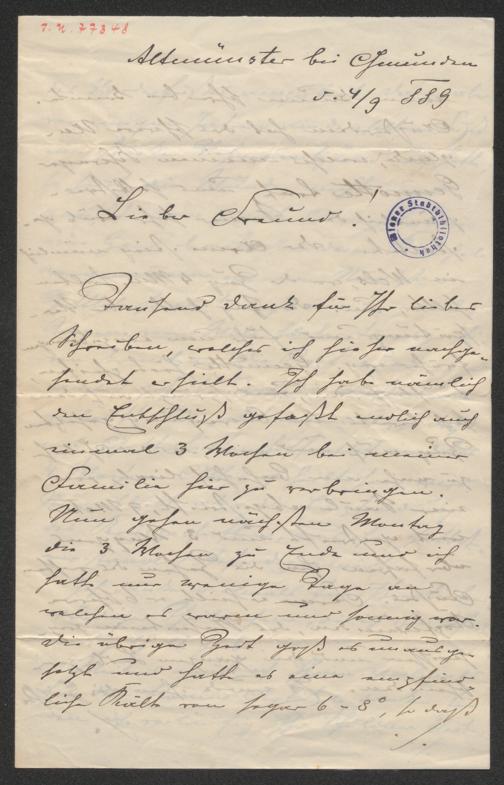 I.N. 77348
Altmünster bei Gmunden
d. 4/9 889
Wiener Stadtbibliothek
Lieber Freund!
Tausend dank für Ihr liebes
Schreiben, welches ich hieher nachge-
sendet erhielt. Ich habe nämlich
den Entschluß gefaßt endlich auch
einmal 3 Wochen bei meiner
Familie hier zu verbringen.
Nun gehen nächsten Montag
die 3 Wochen zu Ende und ich
hatte nur wenige Tage an
welchen es warm und sonnig war.
Die übrige Zeit goß es unausge-
setzt und hatte es eine empfind-
liche Kälte von sogar 6 – 8°, so daß